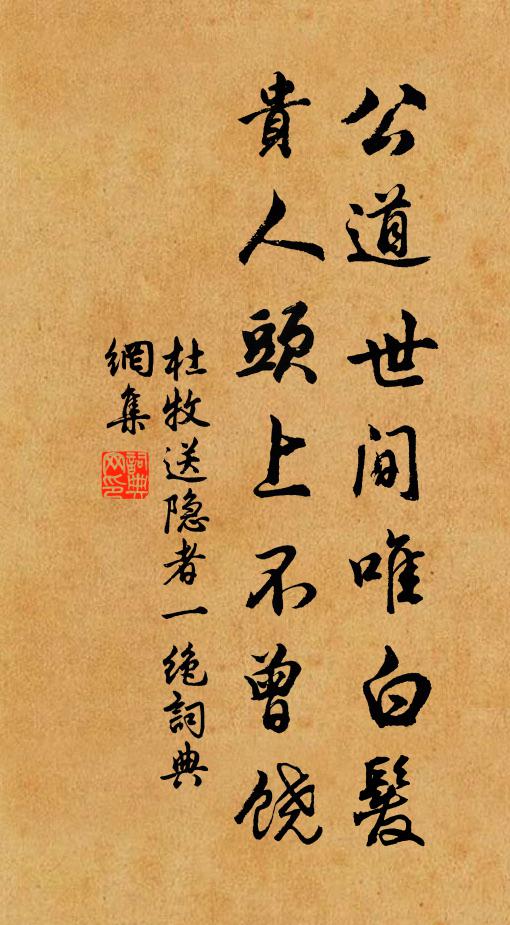 公道世间唯白髮
貴人頭上不曾饶
杜牧送隐者一绝詞典
網集
詞典
网印